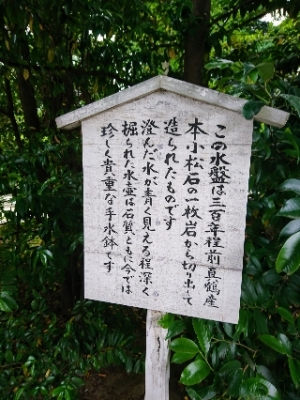 この水盤は三百年程前真鶴産
本小松石の一枚岩から切り出して
造られたものです
澄んだ水が青く見える程深く
掘られた水壷は石質ともに今では
珍しく貴重な手水鉢です